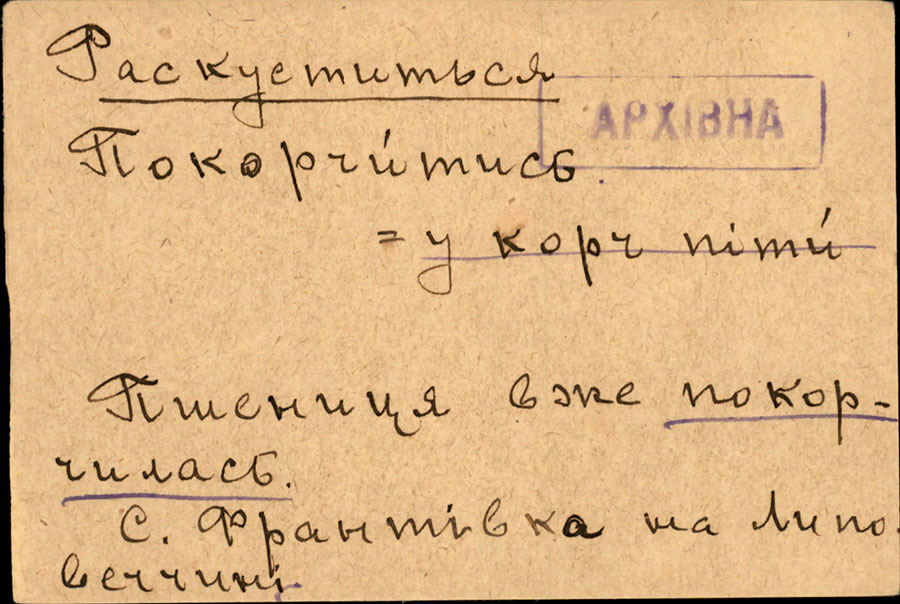 Раскуститься
АРХІВНА
Покорчи́тись
= у корч піти́
Пшениця вже покор-
чилась.
С. Франтівка на Липо-
веччині